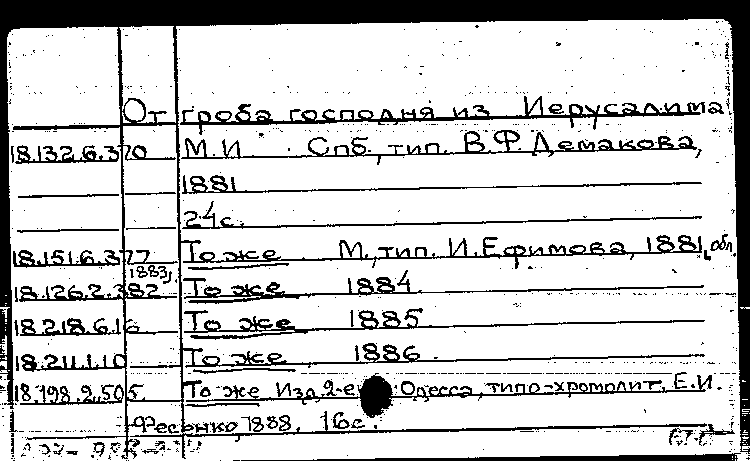 От гроба господня из Иерусалима
18.132.6.370 М.И. Спб., тип. В.Ф. Демакова,
1881.
24с.
18.151.6.377 То же М., тип. И. Ефимова, 1881, обл.
1883,
18.126.2.382 То же 1884.
18.218.6.16 То же 1885.
18.211.1.10 То же, 1886.
18.198.2.505. То же Изд. 2-е. Одесса, типо-хромолит. Е.И.
Фесенко, 1888. 16с.